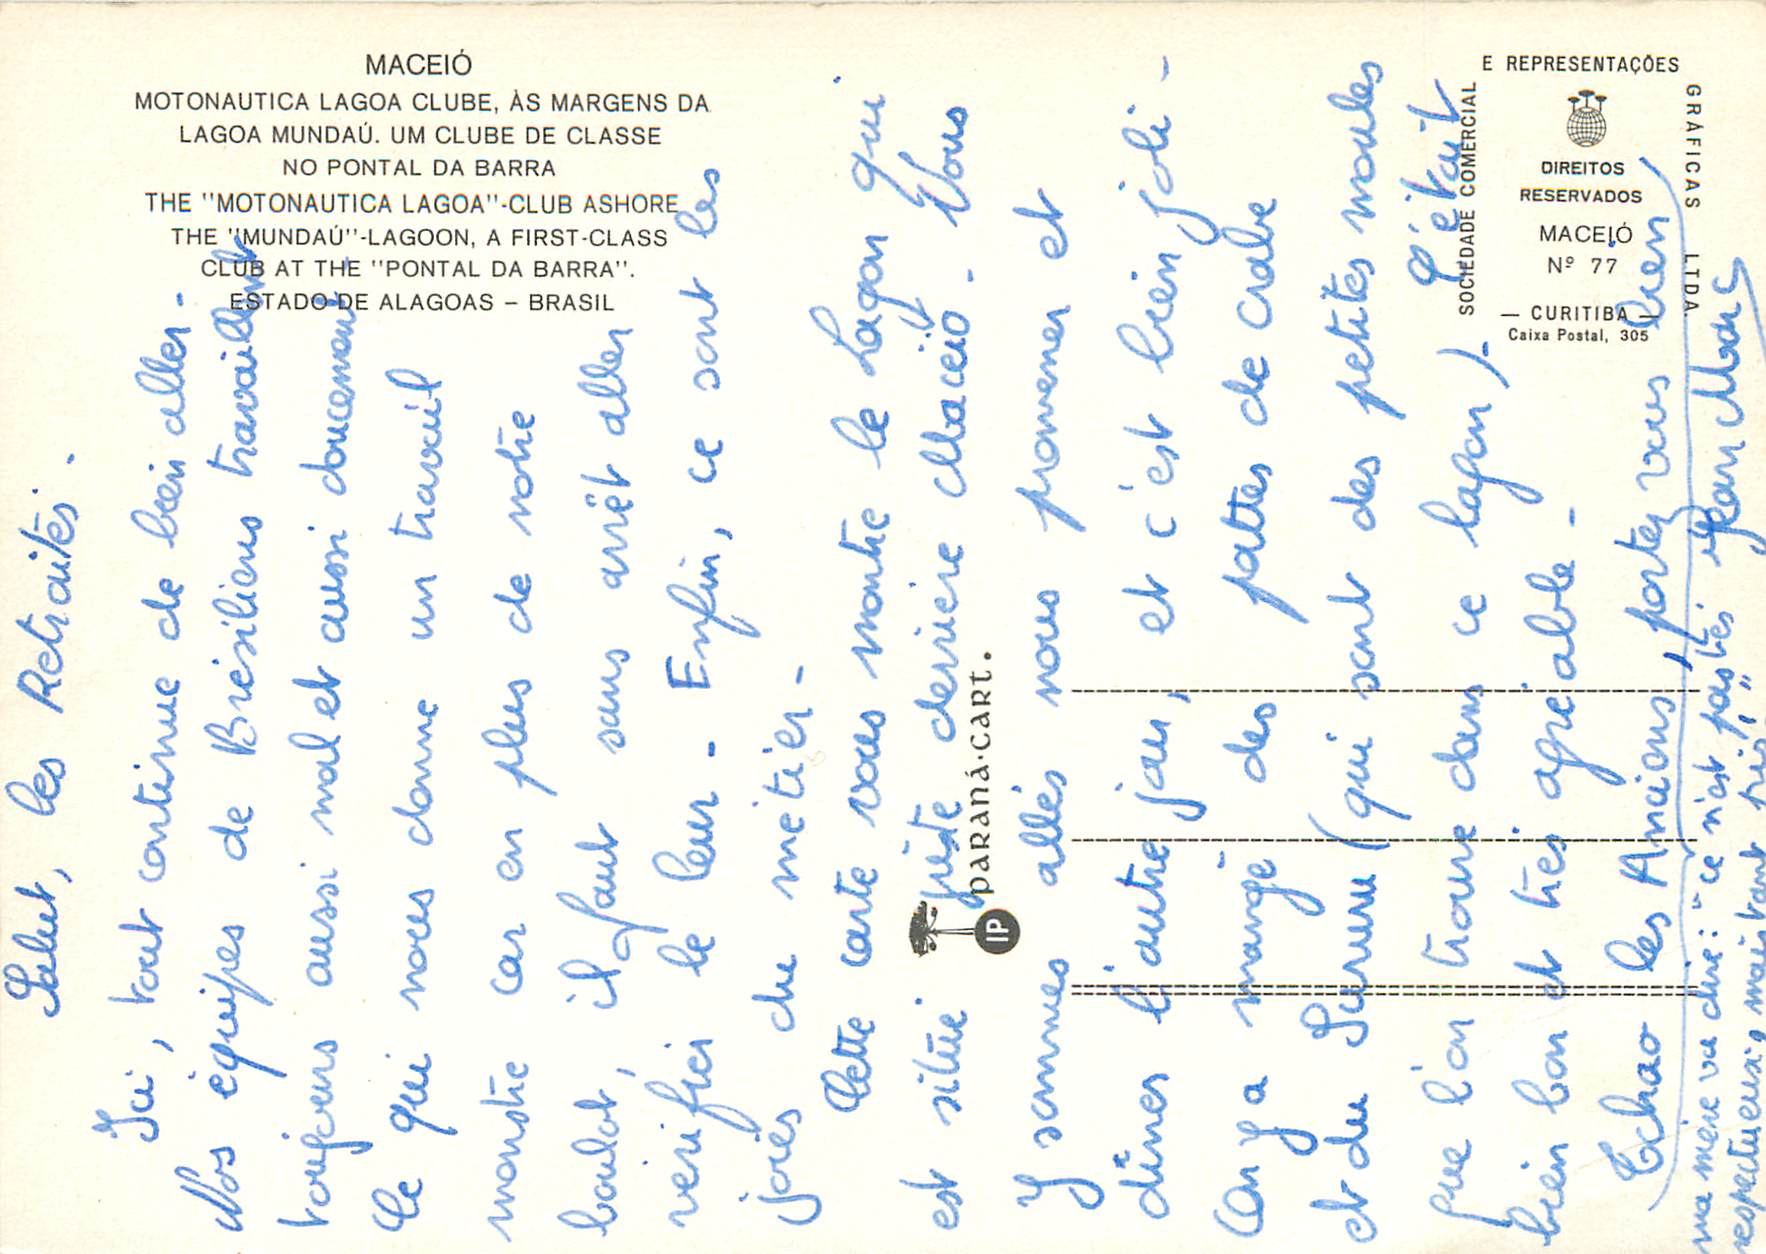 MACEIÓ
MOTONAUTICA LAGOA CLUBE, ÀS MARGENS DA
LAGOA MUNDAÚ. UM CLUBE DE CLASSE
NO PONTAL DA BARRA
THE "MOTONAUTICA LAGOA"-CLUB ASHORE
THE "MUNDAÚ"-LAGOON, A FIRST-CLASS
CLUB AT THE "PONTAL DA BARRA".
ESTADO DE ALAGOAS – BRASIL
SOCIEDADE COMERCIAL
E REPRESENTAÇÕES
GRÁFICAS LTDA.
DIREITOS
RESERVADOS
MACEIÓ
Nº 77
— CURITIBA —
Caixa Postal, 305
IP paraná·cart.
Salut, les Retraités.
Ici, tout continue de bien aller -
Nos équipes de Brésiliens travaillent
toujours aussi mal et aussi doucement -
Ce qui nous donne un travail
monstre car en plus de notre
boulot, il faut sans arrêt aller
verifier le leur - Enfin, ce sont les
joies du métier -
Cette carte vous montre le Lagon qui
est situé juste derrière Maceio - Nous
y sommes allés nous promener et
dîner l'autre jour, et c'est bien joli -
On y a mangé des pattes de crabe
et du Sururu (qui sont des petites moules
que l'on trouve dans ce lagon). C'était
bien bon et très agréable -
Tchao les Anciens, portez vous bien
Jean Marc
ma mère va dire: "ce n'est pas très
respectueux, mais tant pis"